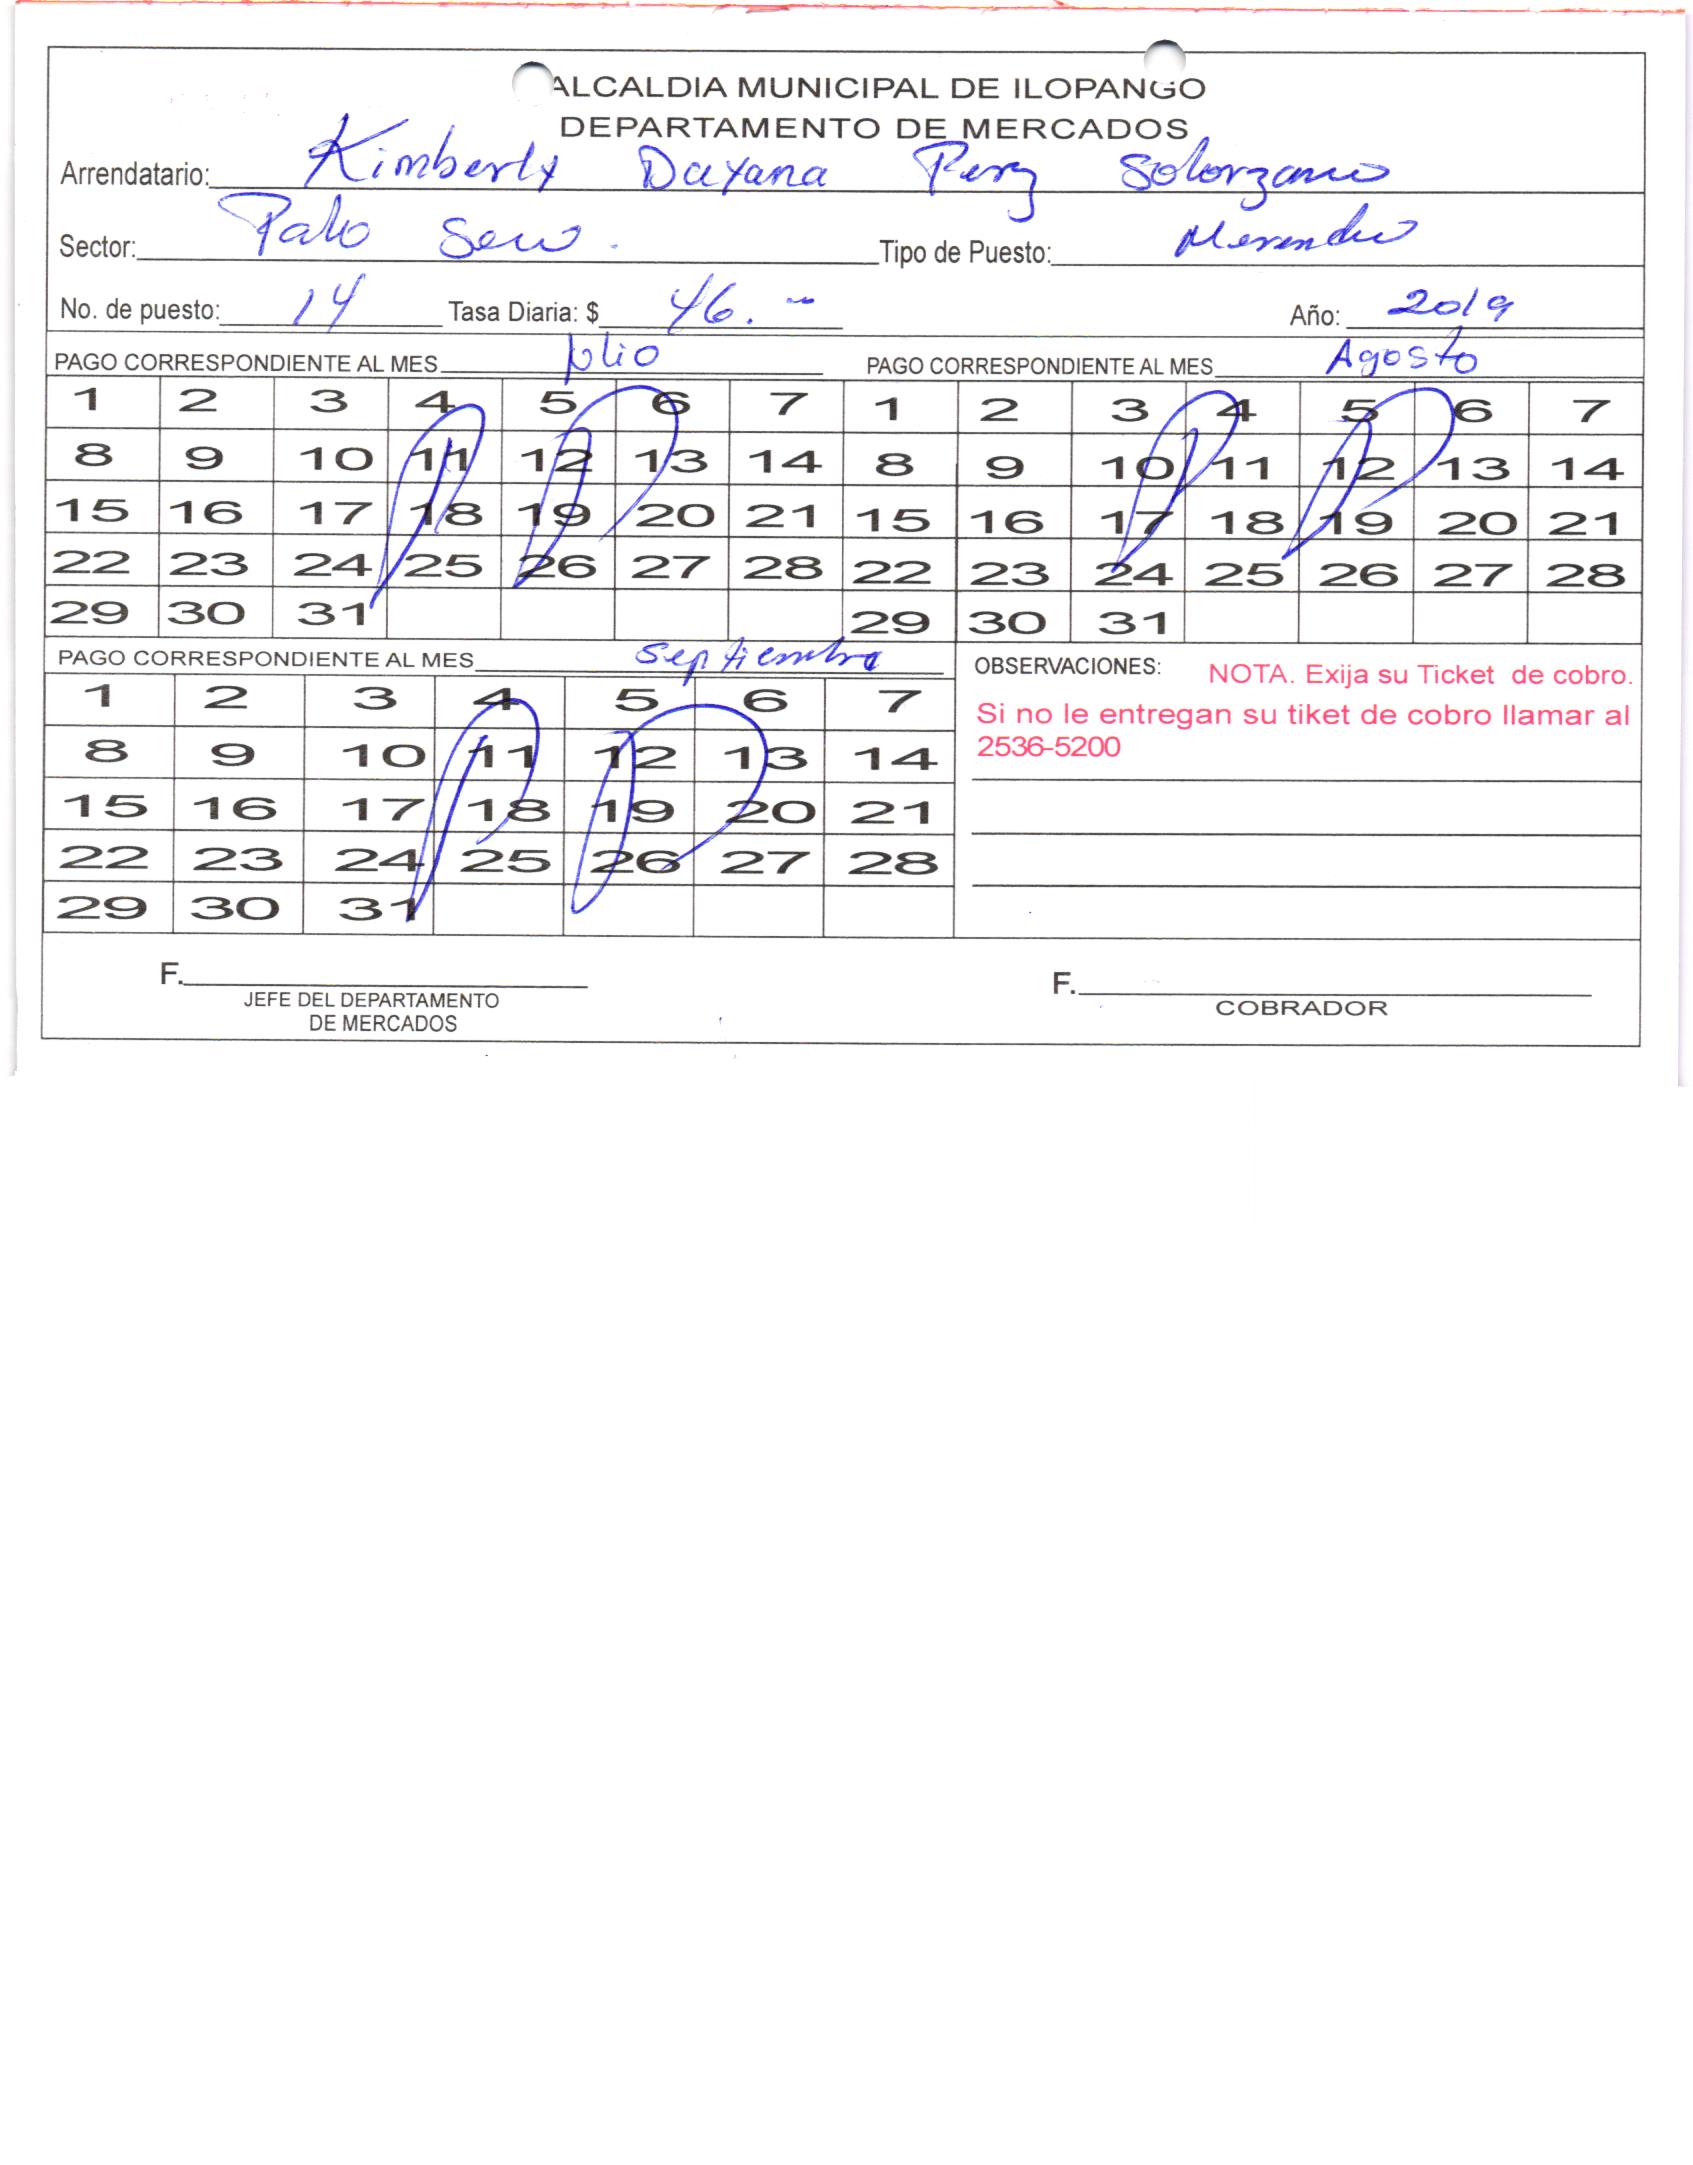 ALCALDIA MUNICIPAL DE ILOPANGO
DEPARTAMENTO DE MERCADOS
Arrendatario: Kimberly Dayana Perez Solorzano
Sector: Palo Seco. Tipo de Puesto:
No. de puesto: 14 Tasa Diaria: $ 46. Año: 2019
PAGO CORRESPONDIENTE AL MES Julio PAGO CORRESPONDIENTE AL MES Agosto
1 2 3 4 5 6 7 1 2 3 4 5 6 7
8 9 10 11 12 13 14 8 9 10 11 12 13 14
15 16 17 18 19 20 21 15 16 17 18 19 20 21
22 23 24 25 26 27 28 22 23 24 25 26 27 28
29 30 31 29 30 31
PAGO CORRESPONDIENTE AL MES septiembre
1 2 3 4 5 6 7
8 9 10 11 12 13 14
15 16 17 18 19 20 21
22 23 24 25 26 27 28
29 30 31
OBSERVACIONES: NOTA. Exija su Ticket de cobro.
Si no le entregan su tiket de cobro llamar al
2536-5200
F. F.
JEFE DEL DEPARTAMENTO
DE MERCADOS
COBRADOR